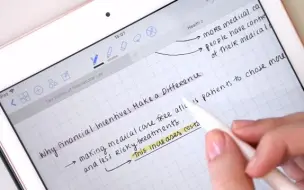 more medical ca
people have control
of their medical
Why Financial Incentives Make a Difference
→ making medical care free all s patients to chose more
and less risky treatments
→ This increases costs